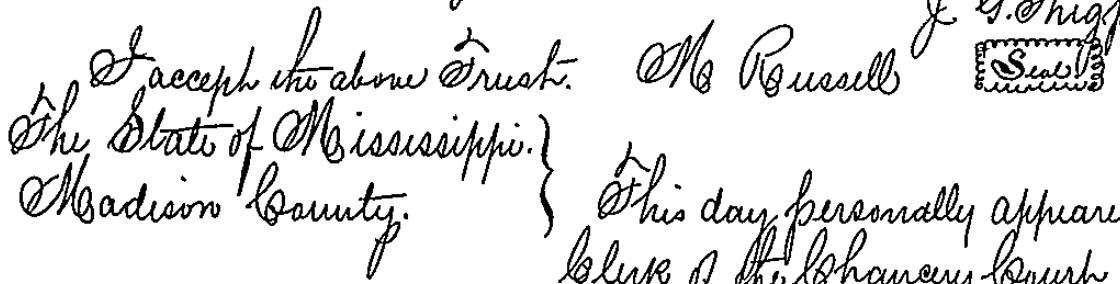 J. G.
I accept the above Trust. M Russell Seal
The State of Mississippi. }
Madison County. This day personally appeare
Clerk of the Chancery Court